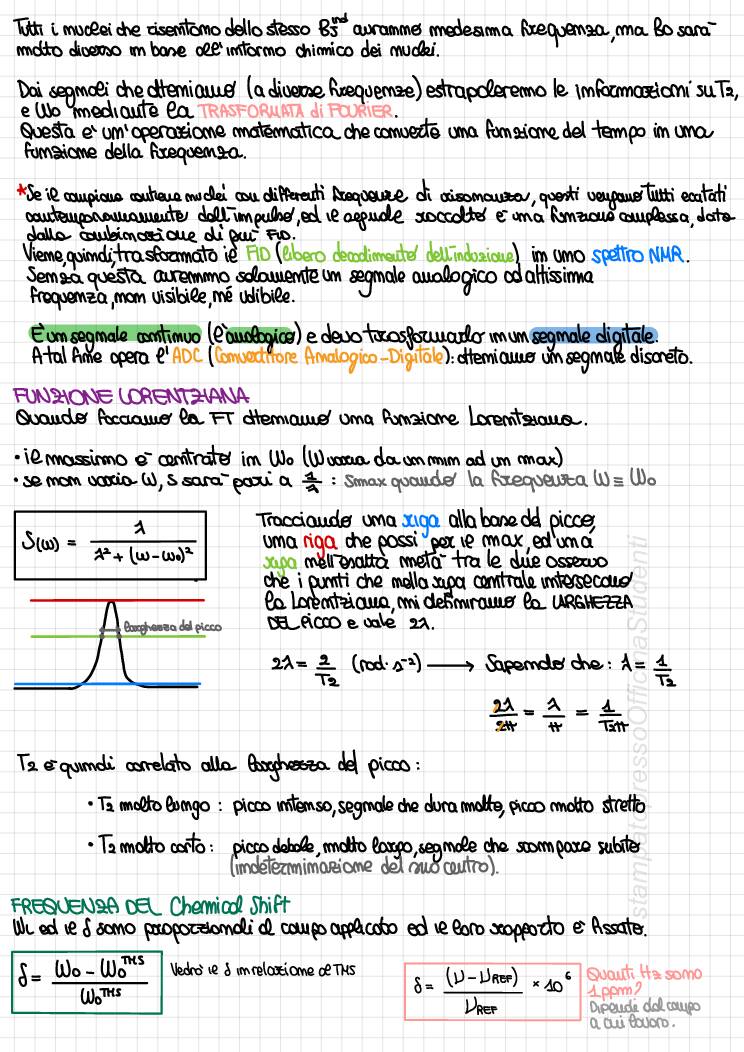 Tutti i nuclei che risentono dello stesso B_J^ind avranno medesima frequenza, ma B0 sarà
molto diverso in base all'intorno chimico dei nuclei.
Dai segnali che otteniamo (a diverse frequenze) estrapoleremo le informazioni su T2,
e ω0 mediante la TRASFORMATA di FOURIER.
Questa è un'operazione matematica che converte una funzione del tempo in una
funzione della frequenza.
*Se il campione contiene nuclei con differenti frequenze di risonanza, questi vengono tutti eccitati
contemporaneamente dall'impulso, ed il segnale raccolto è una funzione complessa, data
dalla combinazione di più FID.
Viene, quindi, trasformato il FID (libero decadimento dell'induzione) in uno spettro NMR.
Senza questa avremmo solamente un segnale analogico ad altissima
frequenza, non visibile, né udibile.
È un segnale continuo (è analogico) e devo trasformarlo in un segnale digitale.
A tal fine opera l'ADC (Convertitore Analogico-Digitale): otteniamo un segnale discreto.
FUNZIONE LORENTZIANA
Quando facciamo la FT otteniamo una funzione Lorentziana.
• il massimo è centrato in ω0 (ω varia da un min ad un max)
• se non varia ω, S sarà pari a 1/λ : Smax quando la frequenza ω ≡ ω0
S(ω) = λ / (λ² + (ω-ω0)²)
Tracciando una riga alla base del picco,
una riga che passi per il max, ed una
riga nell'esatta metà tra le due osservo
che i punti che nella riga centrale intersecano
la Lorentziana, mi definiranno la LARGHEZZA
DEL PICCO e vale 2λ.
larghezza del picco
2λ = 2/T2 (rad · s⁻²) ⟶ Sapendo che: λ = 1/T2
2λ/2π = λ/π = 1/T2π
T2 è quindi correlato alla larghezza del picco:
• T2 molto lungo : picco intenso, segnale che dura molto, picco molto stretto
• T2 molto corto : picco debole, molto largo, segnale che scompare subito
(indeterminazione del suo centro).
FREQUENZA DEL Chemical Shift
ωL ed il δ sono proporzionali al campo applicato ed il loro rapporto è fissato.
δ = (ω0 - ω0^TMS) / ω0^TMS
Vedrò il δ in relazione al TMS
δ = (ν - νREF) / νREF × 10⁶
Quanti Hz sono
1 ppm?
Dipende dal campo
a cui lavoro.
stampatopressoOfficinaStudenti